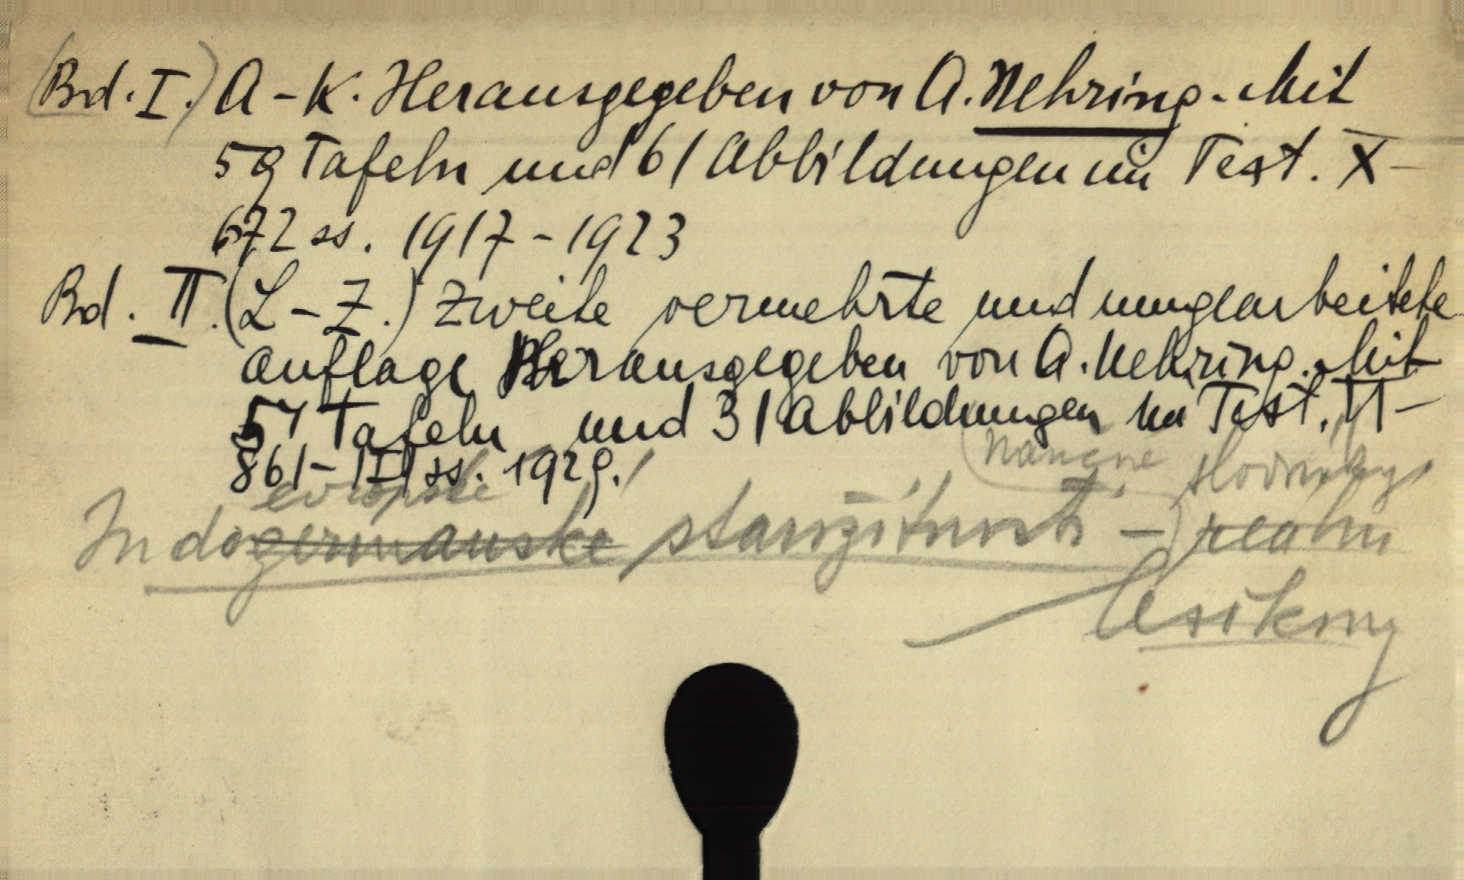 (Bd. I.) A-K. Herausgegeben von A. Nehring. Mit
59 Tafeln und 61 Abbildungen im Text. X-
672 ss. 1917-1923
Bd. II. (L-Z.) Zweite vermehrte und umgearbeitete
Auflage Herausgegeben von A. Nehring. Mit
57 Tafeln und 31 Abbildungen im Text. II-
861-III ss. 1929.
naučné slovníky
evropské
Indogermanské starožitnosti - reálné